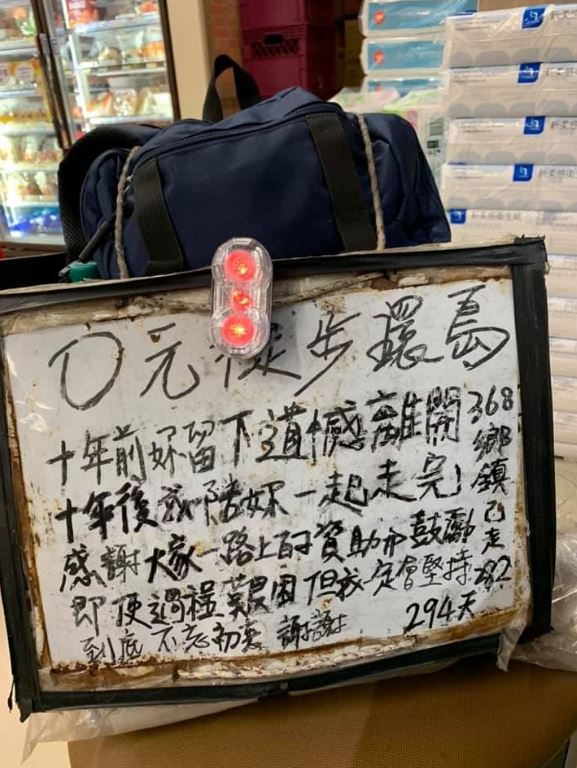 0元徒步環島
十年前妳留下遺憾離開
十年後我陪妳一起走完
感謝大家一路上的資助和鼓勵
即便過程艱困但我定會堅持
到底 不忘初衷 謝謝
368鄉鎮已走282
294天
新柔感衛生紙